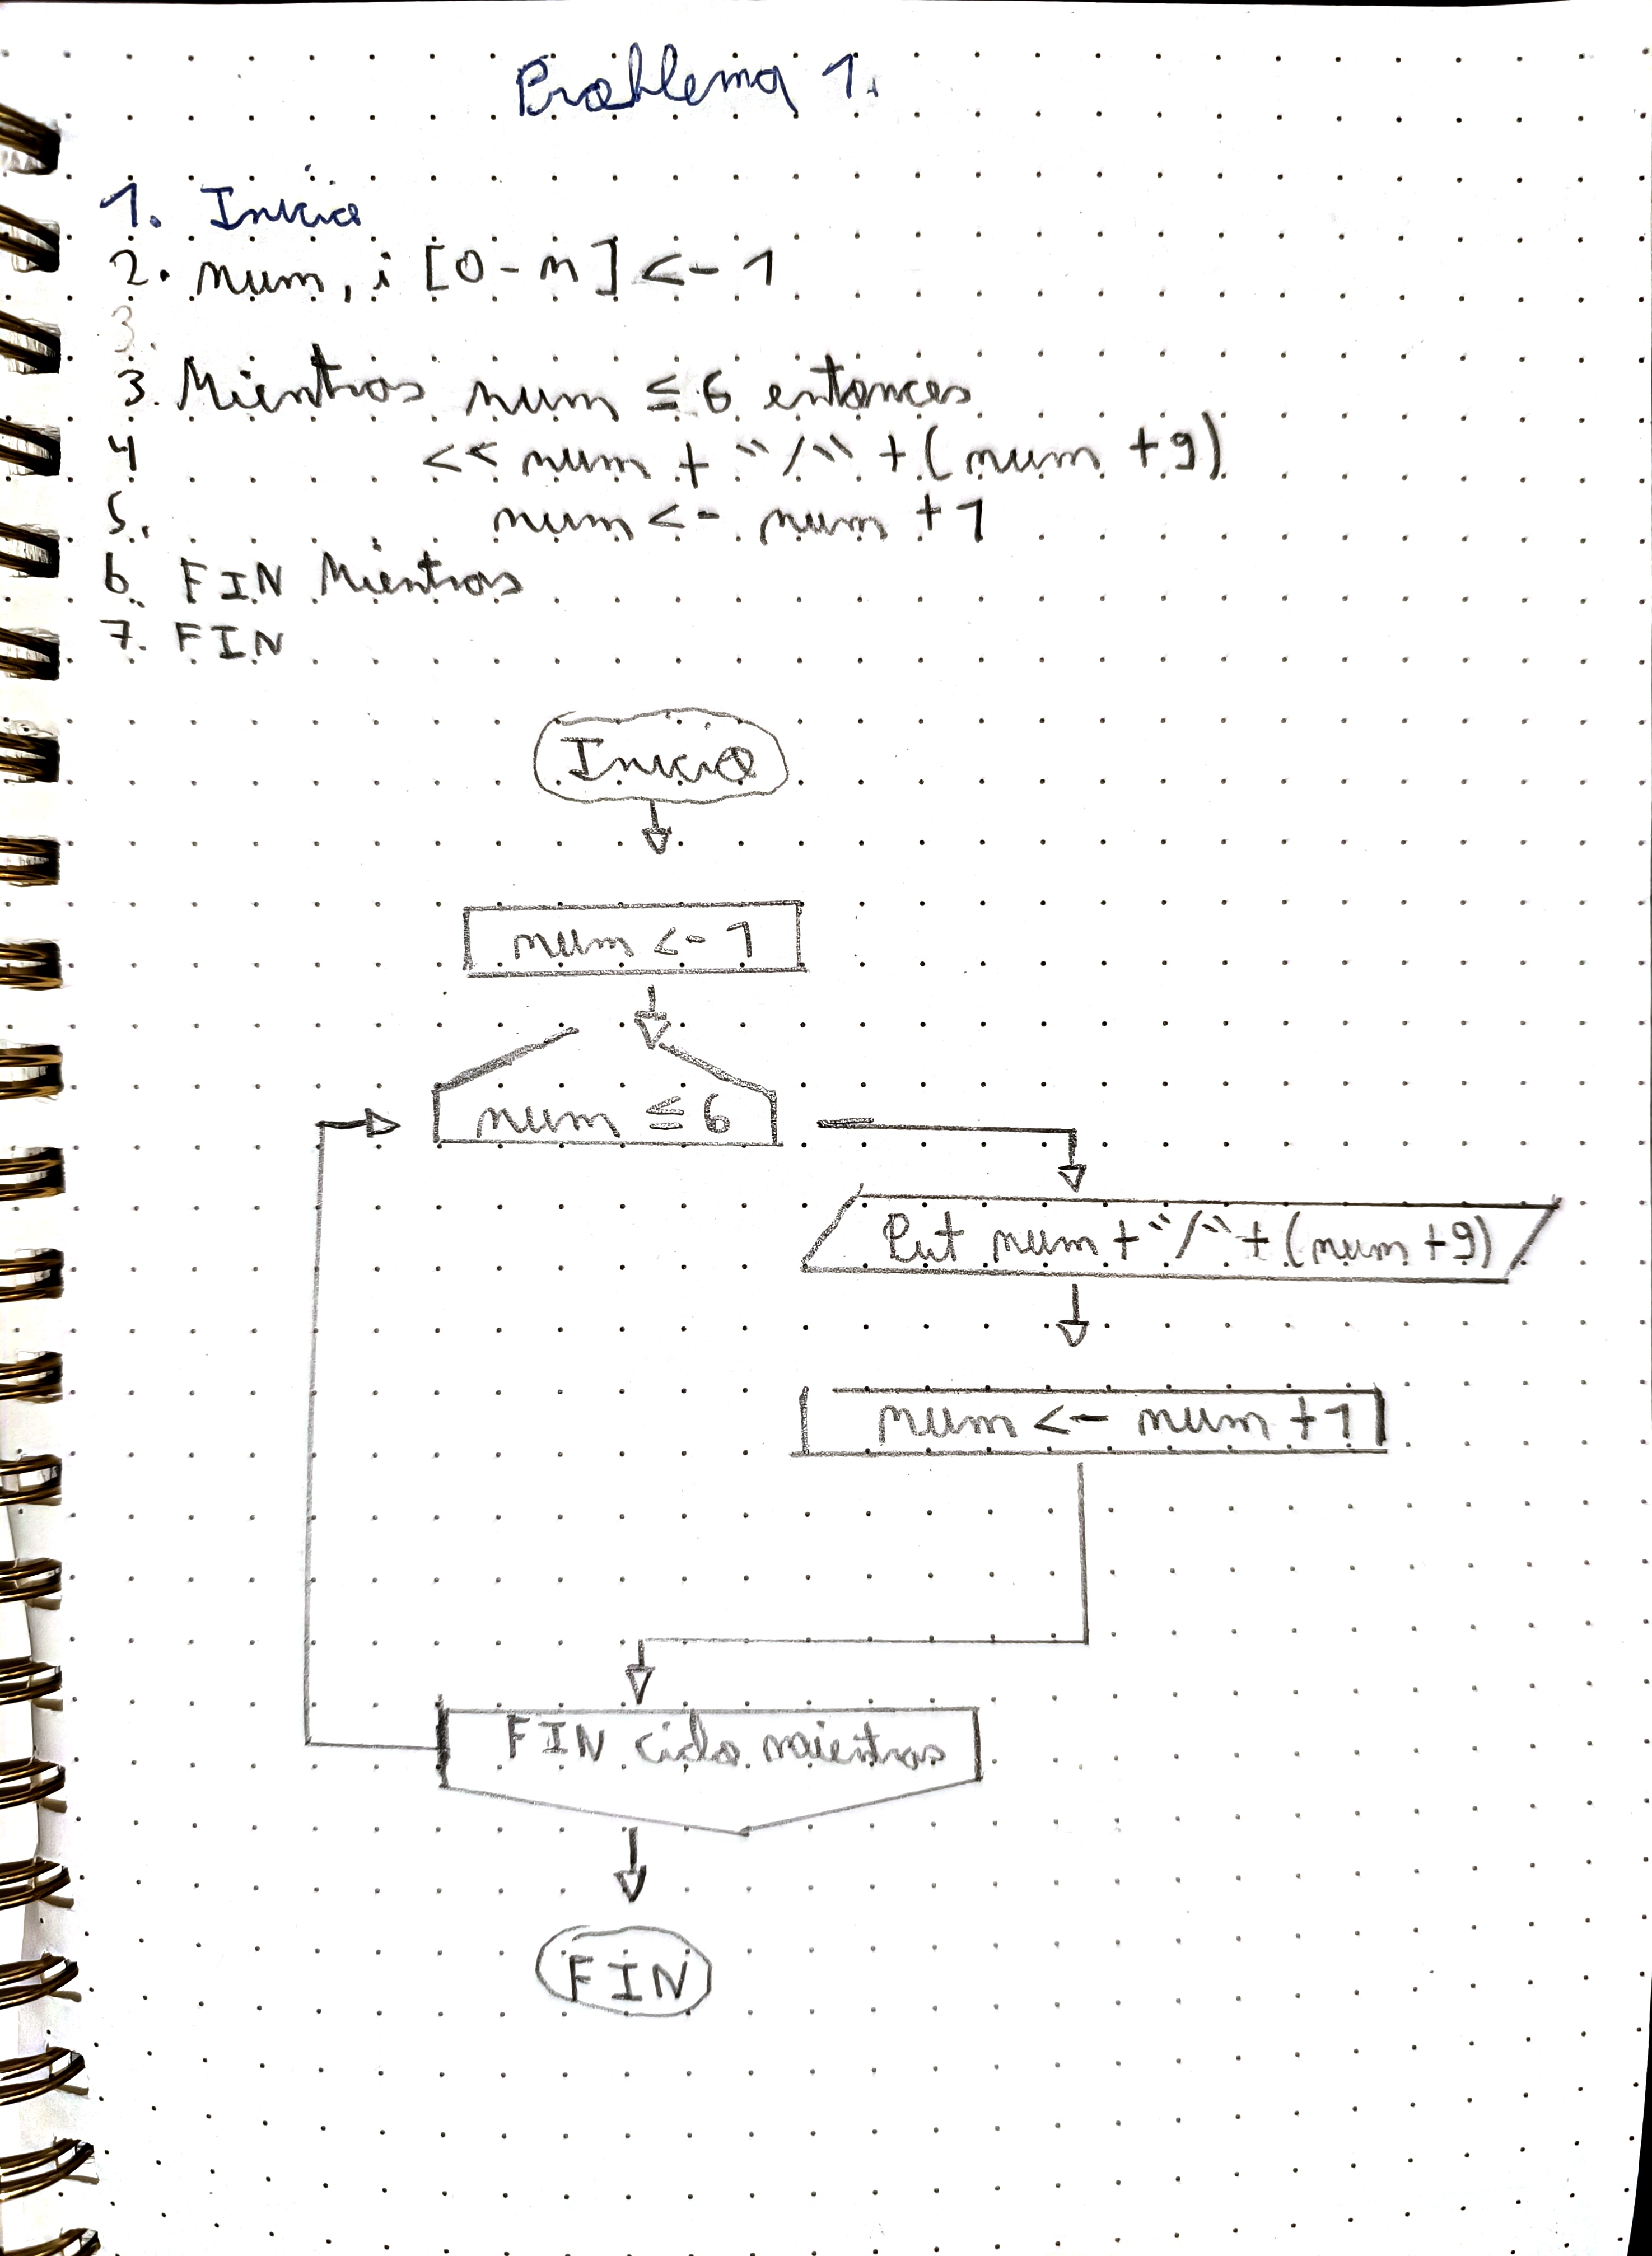 Problema 1.
1. Inicio
2. num, i [0-n] <- 1
3.
3. Mientras num ≤ 6 entonces
4 << num + "/" + (num + 9)
5. num <- num + 1
6. FIN Mientras
7. FIN
Inicio
num <- 1
num ≤ 6
Put num + "/" + (num + 9)
num <- num + 1
FIN ciclo mientras
FIN